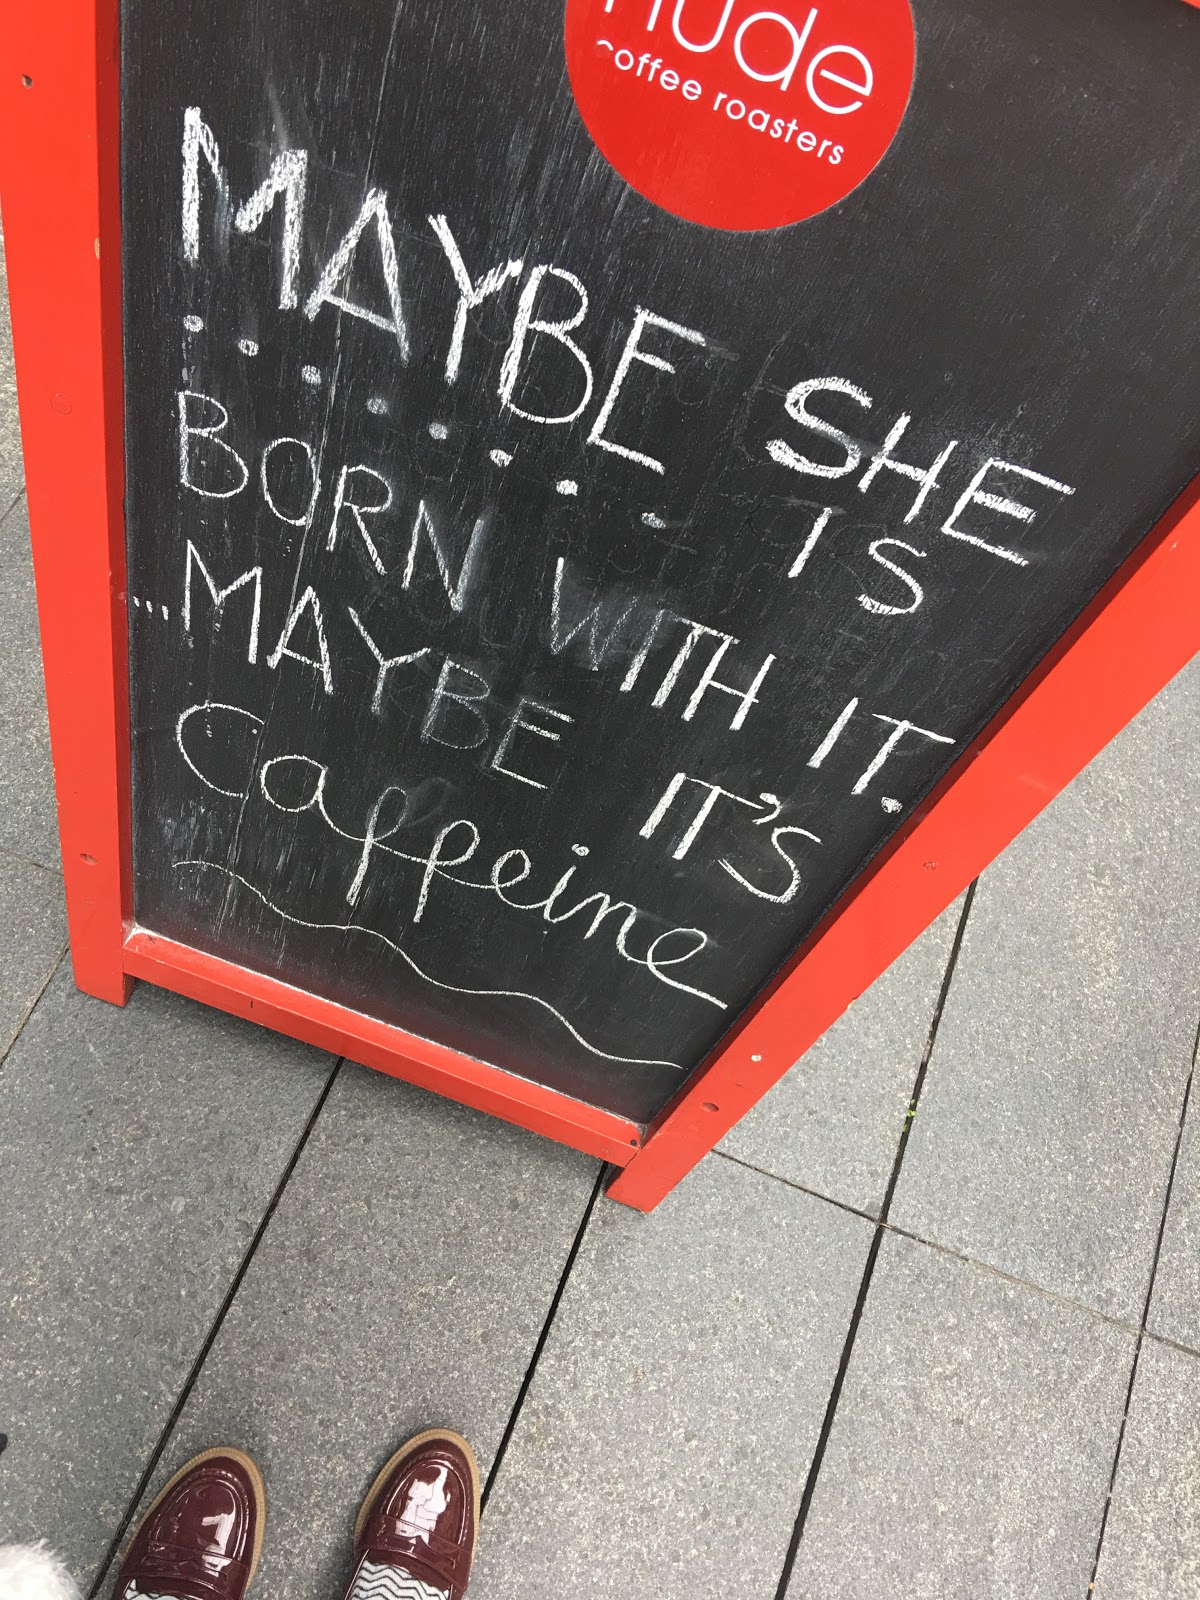 nude
coffee roasters
MAYBE SHE IS
........
BORN WITH IT.
...MAYBE IT'S
Caffeine